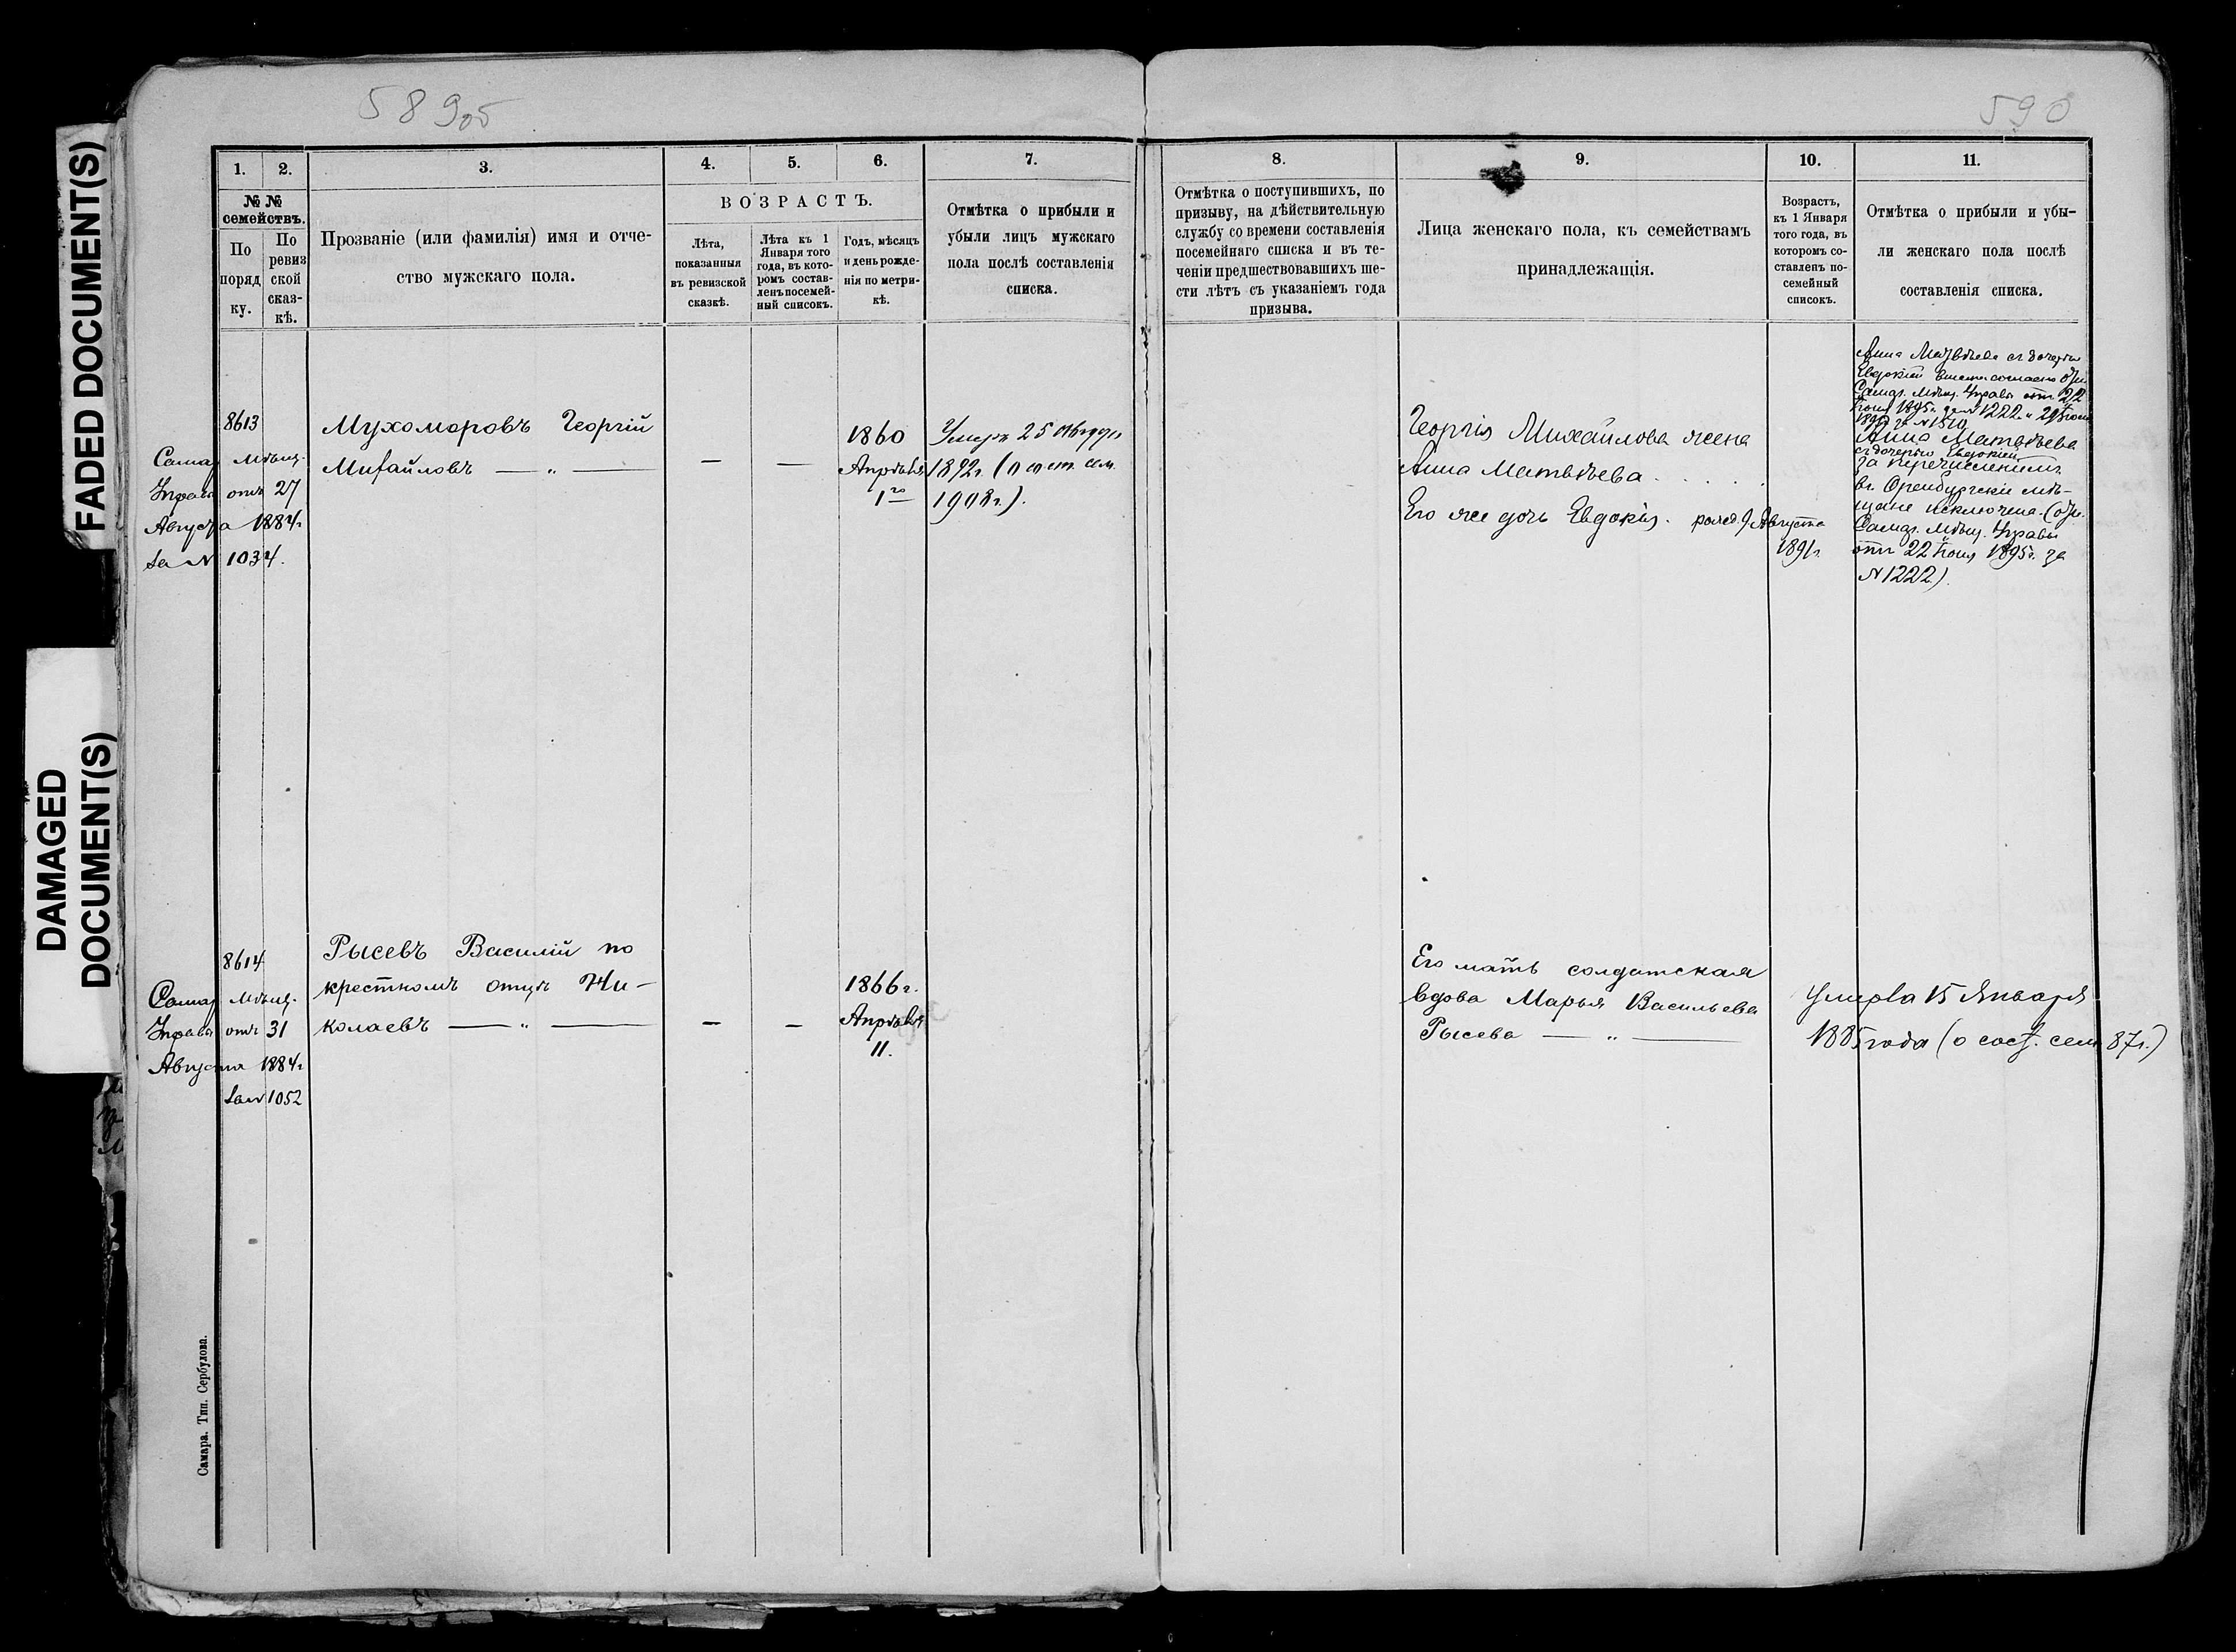 FADED DOCUMENT(S)
DAMAGED
DOCUMENT(S)
589об
590
1.
2.
3.
4.
5.
6.
7.
№ №
семействъ.
По
поряд
ку.
По
ревиз
ской
сказ-
кѣ.
Прозваніе (или фамилія) имя и отче-
ство мужскаго пола.
ВОЗРАСТЪ.
Лѣта,
показанныя
въ ревизской
сказкѣ.
Лѣта къ 1
Января того
года, въ кото-
ромъ состав-
ленъ посемей-
ный списокъ.
Годъ, мѣсяцъ
и день рожде-
нія по метри-
кѣ.
Отмѣтка о прибыли и
убыли лицъ мужскаго
пола послѣ составленія
списка.
8.
9.
10.
11.
Отмѣтка о поступившихъ, по
призыву, на дѣйствительную
службу со времени составленія
посемейнаго списка и въ те-
ченіи предшествовавшихъ ше-
сти лѣтъ съ указаніемъ года
призыва.
Лица женскаго пола, къ семействамъ
принадлежащія.
Возрастъ,
къ 1 Января
того года, въ
которомъ со-
ставленъ по-
семейный
списокъ.
Отмѣтка о прибыли и убы-
ли женскаго пола послѣ
составленія списка.
8613
Самар Мѣщ.
Управы отъ 27
Августа 1884г
за № 1034.
Мухоморовъ Георгій
Михайловъ — „ —
— —
1860
Апрѣля
1го
Умеръ 25 августа
1892г. (о сост. сем.
1908г.).
Георгія Михайлова жена
Анна Матвѣева . . . . .
Его же дочь Евдокія. рожд. 9 Августа
1891г
Анна Матвѣева съ дочерью
Евдокіей согласно отн.
Самар. Мѣщ. Управы отъ 22
Іюня 1895г. за № 1222 и 29 Іюня
за № 1510
Анна Матвѣева
съ дочерью Евдокіей
за перечисленіемъ
въ Оренбургскіе мѣ-
щане исключена. (отн.
Самар. Мѣщ. Управы
отъ 22 Іюня 1895г. за
№ 1222).
8614
Самар Мѣщ.
Управы отъ 31
Августа 1884г
за № 1052
Рысевъ Василій по
крестномъ отцѣ Ни-
колаевъ — „ —
— —
1866г.
Апрѣля
11.
Его мать солдатская
вдова Марья Васильева
Рысева — „ —
Умерла 15 Января
1885 года (о сост. сем 87г.)
Самара. Тип. Сербулова.